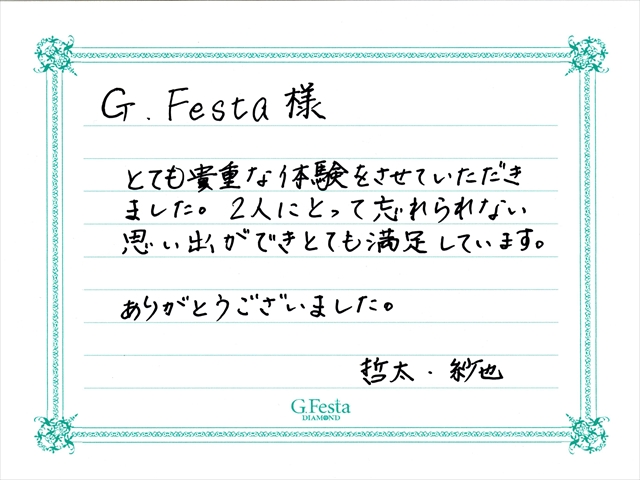 G. Festa 様
とても貴重な体験をさせていただき
ました。2人にとって忘れられない
思い出ができとても満足しています。
ありがとうございました。
哲太・紗也
G.Festa
DIAMOND